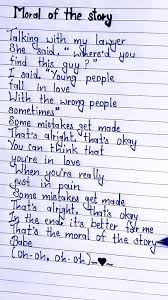 Moral of the story
Talking with my lawyer
She said, "Where'd you
find this guy?"
I said, "Young people
fall in love
With the wrong people
sometimes"
Some mistakes get made
That's alright, that's okay
You can think that
you're in love
When you're really
just in pain
Some mistakes get made
That's alright, that's okay
In the end, it's better for me
That's the moral of the story
Babe
(oh-oh, oh-oh)~♥~